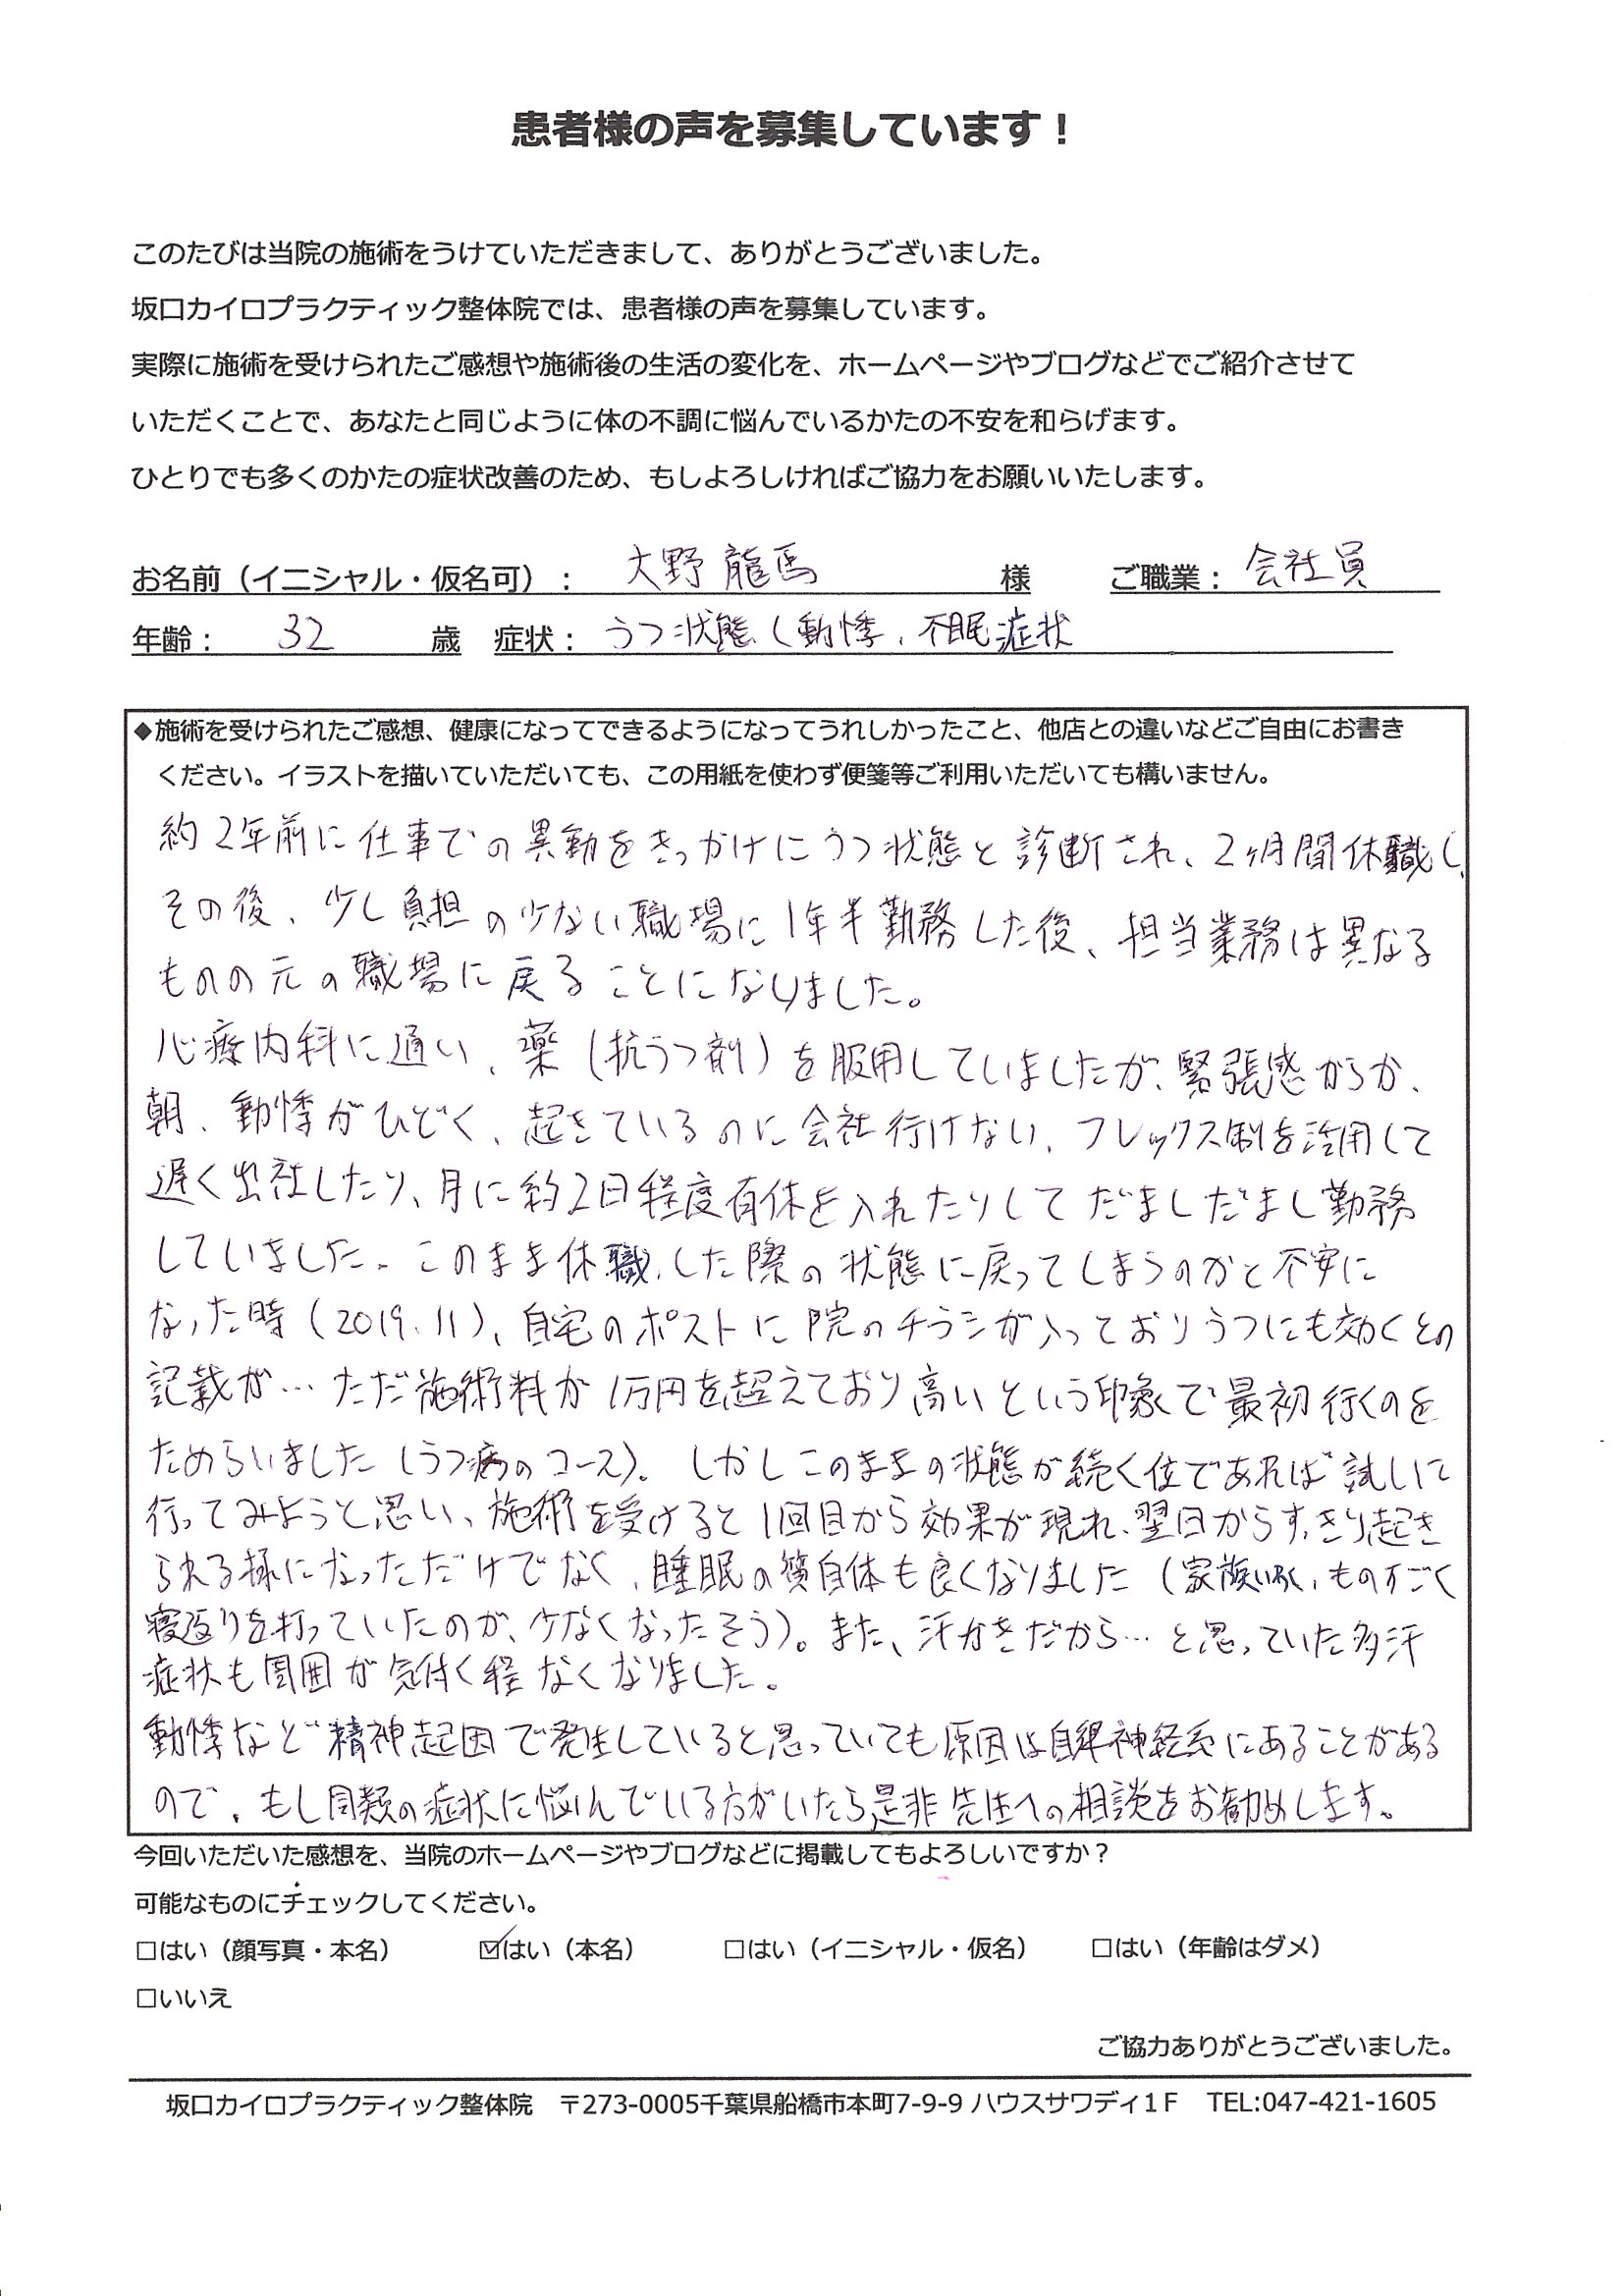 患者様の声を募集しています！
このたびは当院の施術をうけていただきまして、ありがとうございました。
坂口カイロプラクティック整体院では、患者様の声を募集しています。
実際に施術を受けられたご感想や施術後の生活の変化を、ホームページやブログなどでご紹介させて
いただくことで、あなたと同じように体の不調に悩んでいるかたの不安を和らげます。
ひとりでも多くのかたの症状改善のため、もしよろしければご協力をお願いいたします。
お名前（イニシャル・仮名可）： 大野 龍馬 様 ご職業： 会社員
年齢： 32 歳 症状： うつ状態（動悸、不眠症状
◆施術を受けられたご感想、健康になってできるようになってうれしかったこと、他店との違いなどご自由にお書き
ください。イラストを描いていただいても、この用紙を使わず便箋等ご利用いただいても構いません。
約2年前に仕事での異動をきっかけにうつ状態と診断され、2ヶ月間休職し、
その後、少し負担の少ない職場に1年半勤務した後、担当業務は異なる
ものの元の職場に戻ることになりました。
心療内科に通い、薬（抗うつ剤）を服用していましたが、緊張感からか、
朝、動悸がひどく、起きているのに会社行けない、フレックス制を活用して
遅く出社したり、月に約2日程度有休を入れたりしてだましだまし勤務
していました。このまま休職した際の状態に戻ってしまうのかと不安に
なった時（2019.11）、自宅のポストに院のチラシが入っておりうつにも効くとの
記載が…ただ施術料が1万円を超えており高いという印象で最初行くのを
ためらいました（うつ病のコース）。しかしこのままの状態が続く位であれば試しに
行ってみようと思い、施術を受けると1回目から効果が現れ、翌日からすっきり起き
られる様になっただけでなく、睡眠の質自体も良くなりました（家族いわく、ものすごく
寝返りを打っていたのが、少なくなったそう）。また、汗かきだから…と思っていた多汗
症状も周囲が気付く程なくなりました。
動悸など精神起因で発生していると思っていても原因は自律神経系にあることがある
ので、もし同類の症状に悩んでいる方がいたら是非先生への相談をお勧めします。
今回いただいた感想を、当院のホームページやブログなどに掲載してもよろしいですか？
可能なものにチェックしてください。
□はい（顔写真・本名） ☑はい（本名） □はい（イニシャル・仮名） □はい（年齢はダメ）
□いいえ
ご協力ありがとうございました。
坂口カイロプラクティック整体院 〒273-0005千葉県船橋市本町7-9-9 ハウスサワディ1F TEL:047-421-1605